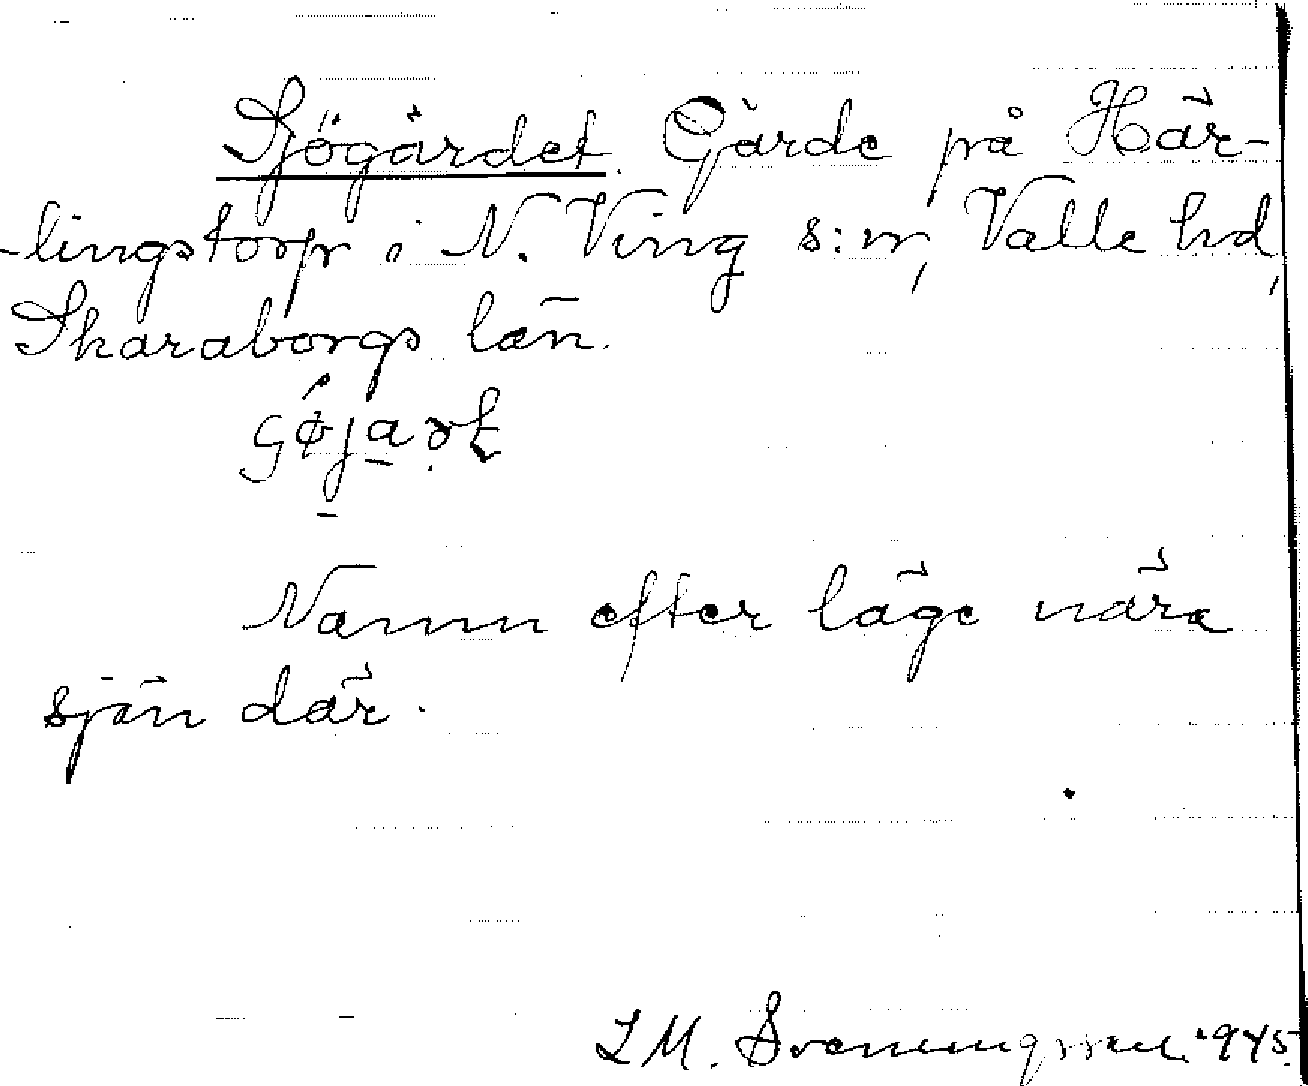 Sjögärdet. Gärde på Här-
lingstorp i N. Ving s:n, Valle hd,
Skaraborgs län.
Namn efter läge nära
sjön där.
L M. 1945.